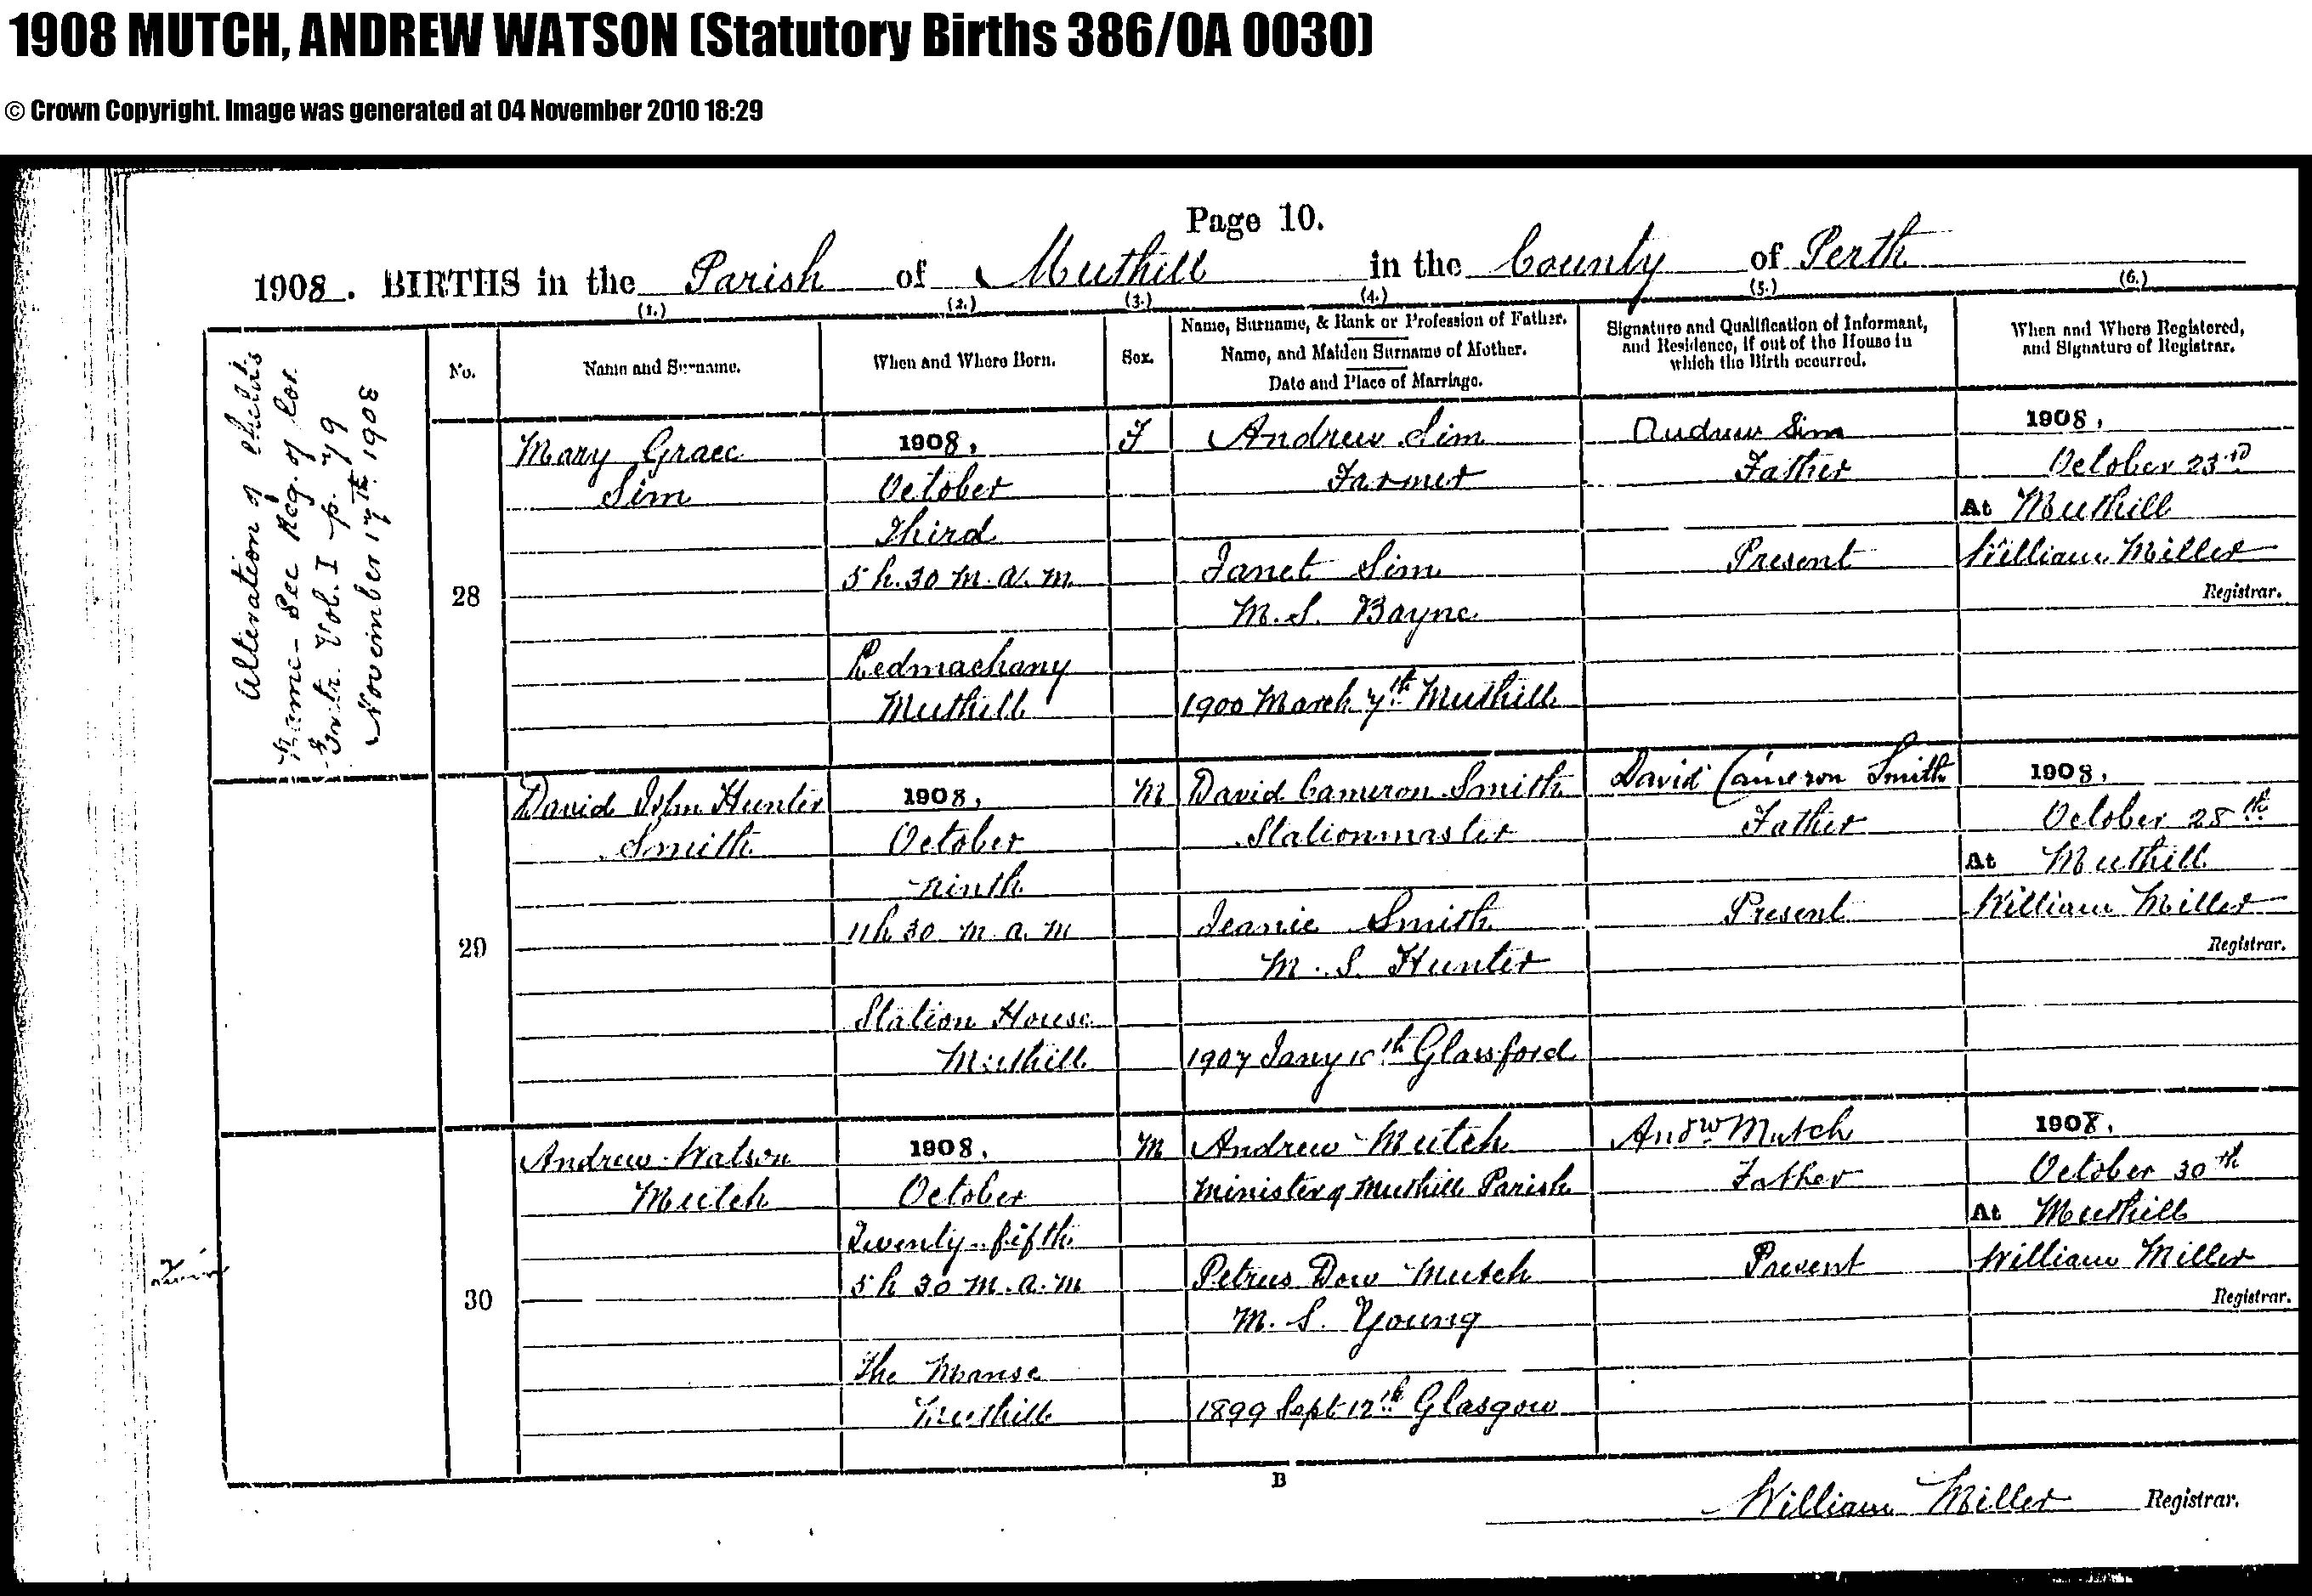 1908 MUTCH, ANDREW WATSON (Statutory Births 386/0A 0030)
© Crown Copyright. Image was generated at 04 November 2010 18:29
Page 10.
1908. BIRTHS in the Parish of Muthill in the County of Perth
(1.) (2.) (3.) (4.) (5.) (6.)
No.
Name and Surname.
When and Where Born.
Sex.
Name, Surname, & Rank or Profession of Father.
Name, and Maiden Surname of Mother.
Date and Place of Marriage.
Signature and Qualification of Informant,
and Residence, if out of the House in
which the Birth occurred.
When and Where Registered,
and Signature of Registrar.
Alteration of child's
Name - See Reg. of Cor.
Entr. Vol. I p. 79
November 17th 1908
28
Mary Grace
Sim
1908,
October
Third
5 h. 30 m. a. m.
Ledmachany
Muthill
F
Andrew Sim
Farmer
Janet Sim
M. S. Bayne
1900 March 7th Muthill
Andrew Sim
Father
Present
1908,
October 23rd
At Muthill
William Miller
Registrar.
29
David John Hunter
Smith
1908,
October
Ninth
11 h 30 m a. m
Station House
Muthill
M
David Cameron Smith
Stationmaster
Jeanie Smith
M. S. Hunter
1907 Jany Glassford
David Cameron Smith
Father
Present
1908,
October 28th
At Muthill
William Miller
Registrar.
30
Andrew Watson
Mutch
1908,
October
Twenty-fifth
5 h 30 m. a. m
The Manse
Muthill
M
Andrew Mutch
Minister of Muthill Parish
Petrus Dow Mutch
M. S. Young
1899 Sept 12th Glasgow
Andw Mutch
Father
Present
1908,
October 30th
At Muthill
William Miller
Registrar.
B
William Miller Registrar.